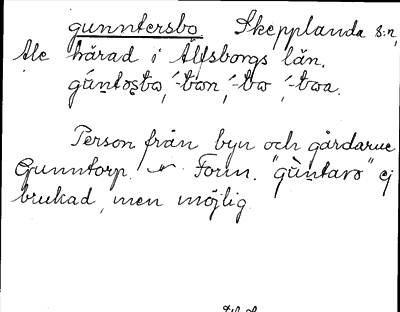 gunntersbo Skepplanda s:n,
Ale härad i Älfsborgs län.
gúntəsbω, ´-bωn, ´-bω, ´-bωa.
Person från byn och gårdarne
Gunntorp. Form. "gùntarə" ej
brukad, men möjlig.